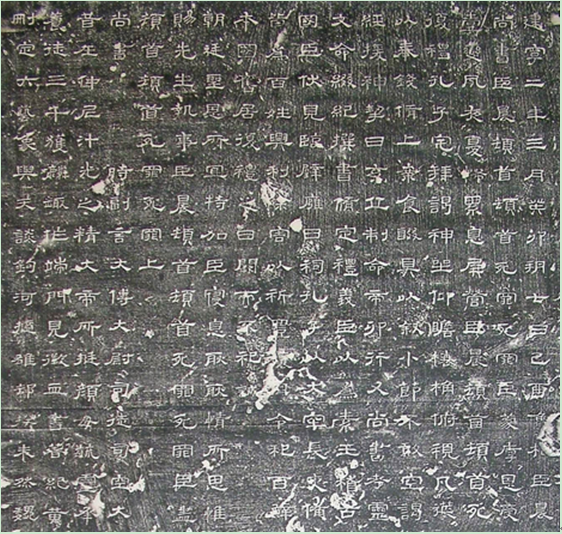 建寧二年三月癸卯朔七日己酉魯相臣晨
尚書臣晨頓首頓首死罪死罪臣蒙厚恩受
壹變夙夜憂怖累息屏營臣晨頓首頓首死
復禮孔子宅拜謁神坐仰瞻榱桷俯視几筵
以奉錢脩上案食醊具以敘小節不敢空謁
經援神挈曰玄丘制命帝卯行又尚書考靈
文命綴紀撰書脩定禮義臣以為素王稽古
國臣伏見臨辟雍日祠孔子以大牢長吏備
皆為百姓興利除害以祈豐穰月令祀百辟
本國舊居復禮之日闕而不祀
朝廷聖恩所宜特加臣寢息耿耿情所思惟
賜先生執事臣晨頓首頓首死罪死罪臣盡
頓首頓首死罪死罪上
尚書 時副言大傅大尉司徒司空大
昔在仲尼汁光之精大帝所挺顏母毓靈承
養徒三千獲麟趣作端門見徵血書著紀黃
刪定六藝象與天談鈞河擿雒郤揆未然魏